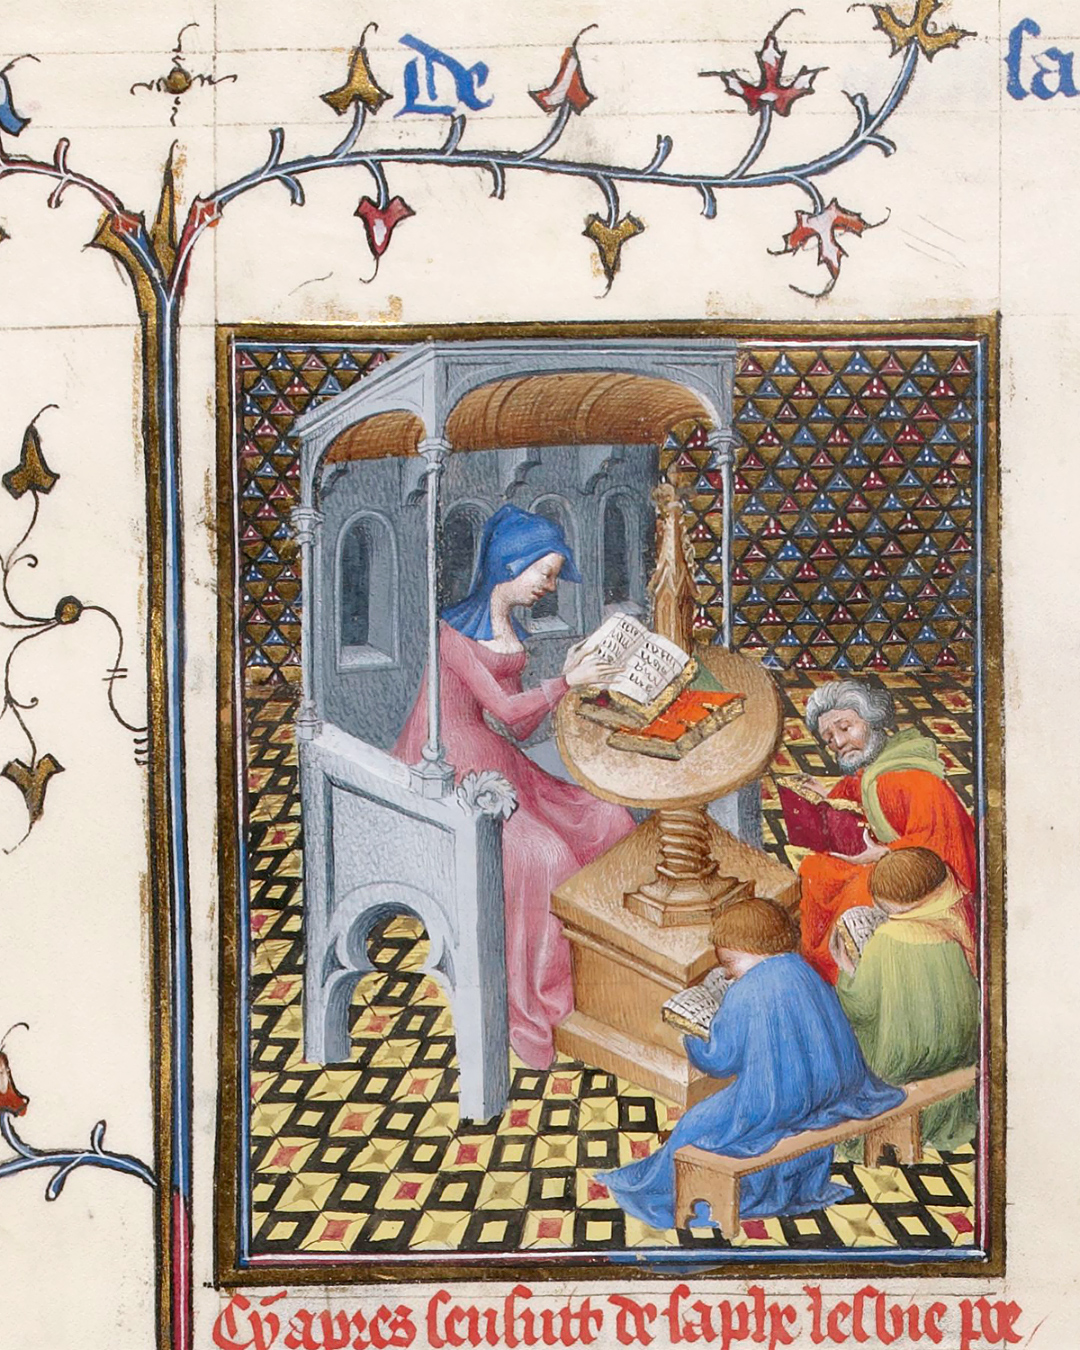 De sa
Cy apres sensuit de saphe lesbie poe